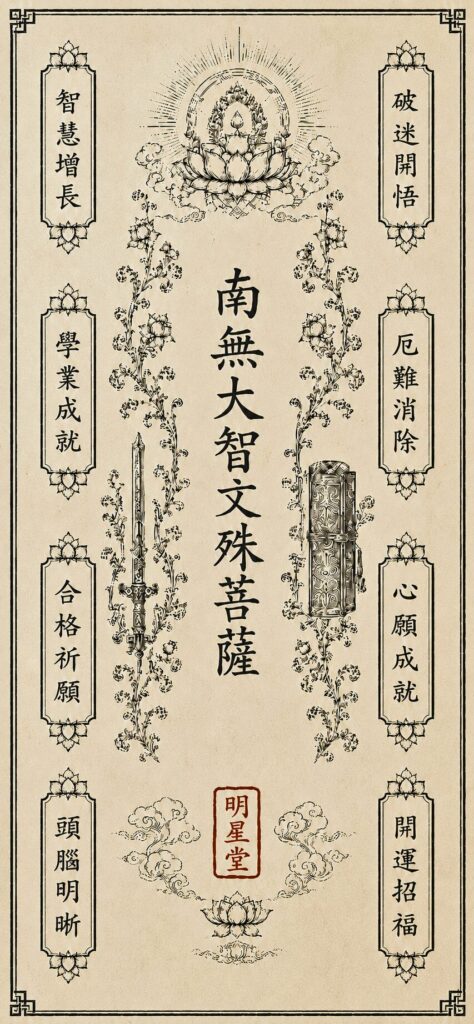 南無大智文殊菩薩
破迷開悟
厄難消除
心願成就
開運招福
智慧增長
學業成就
合格祈願
頭腦明晰
明星堂